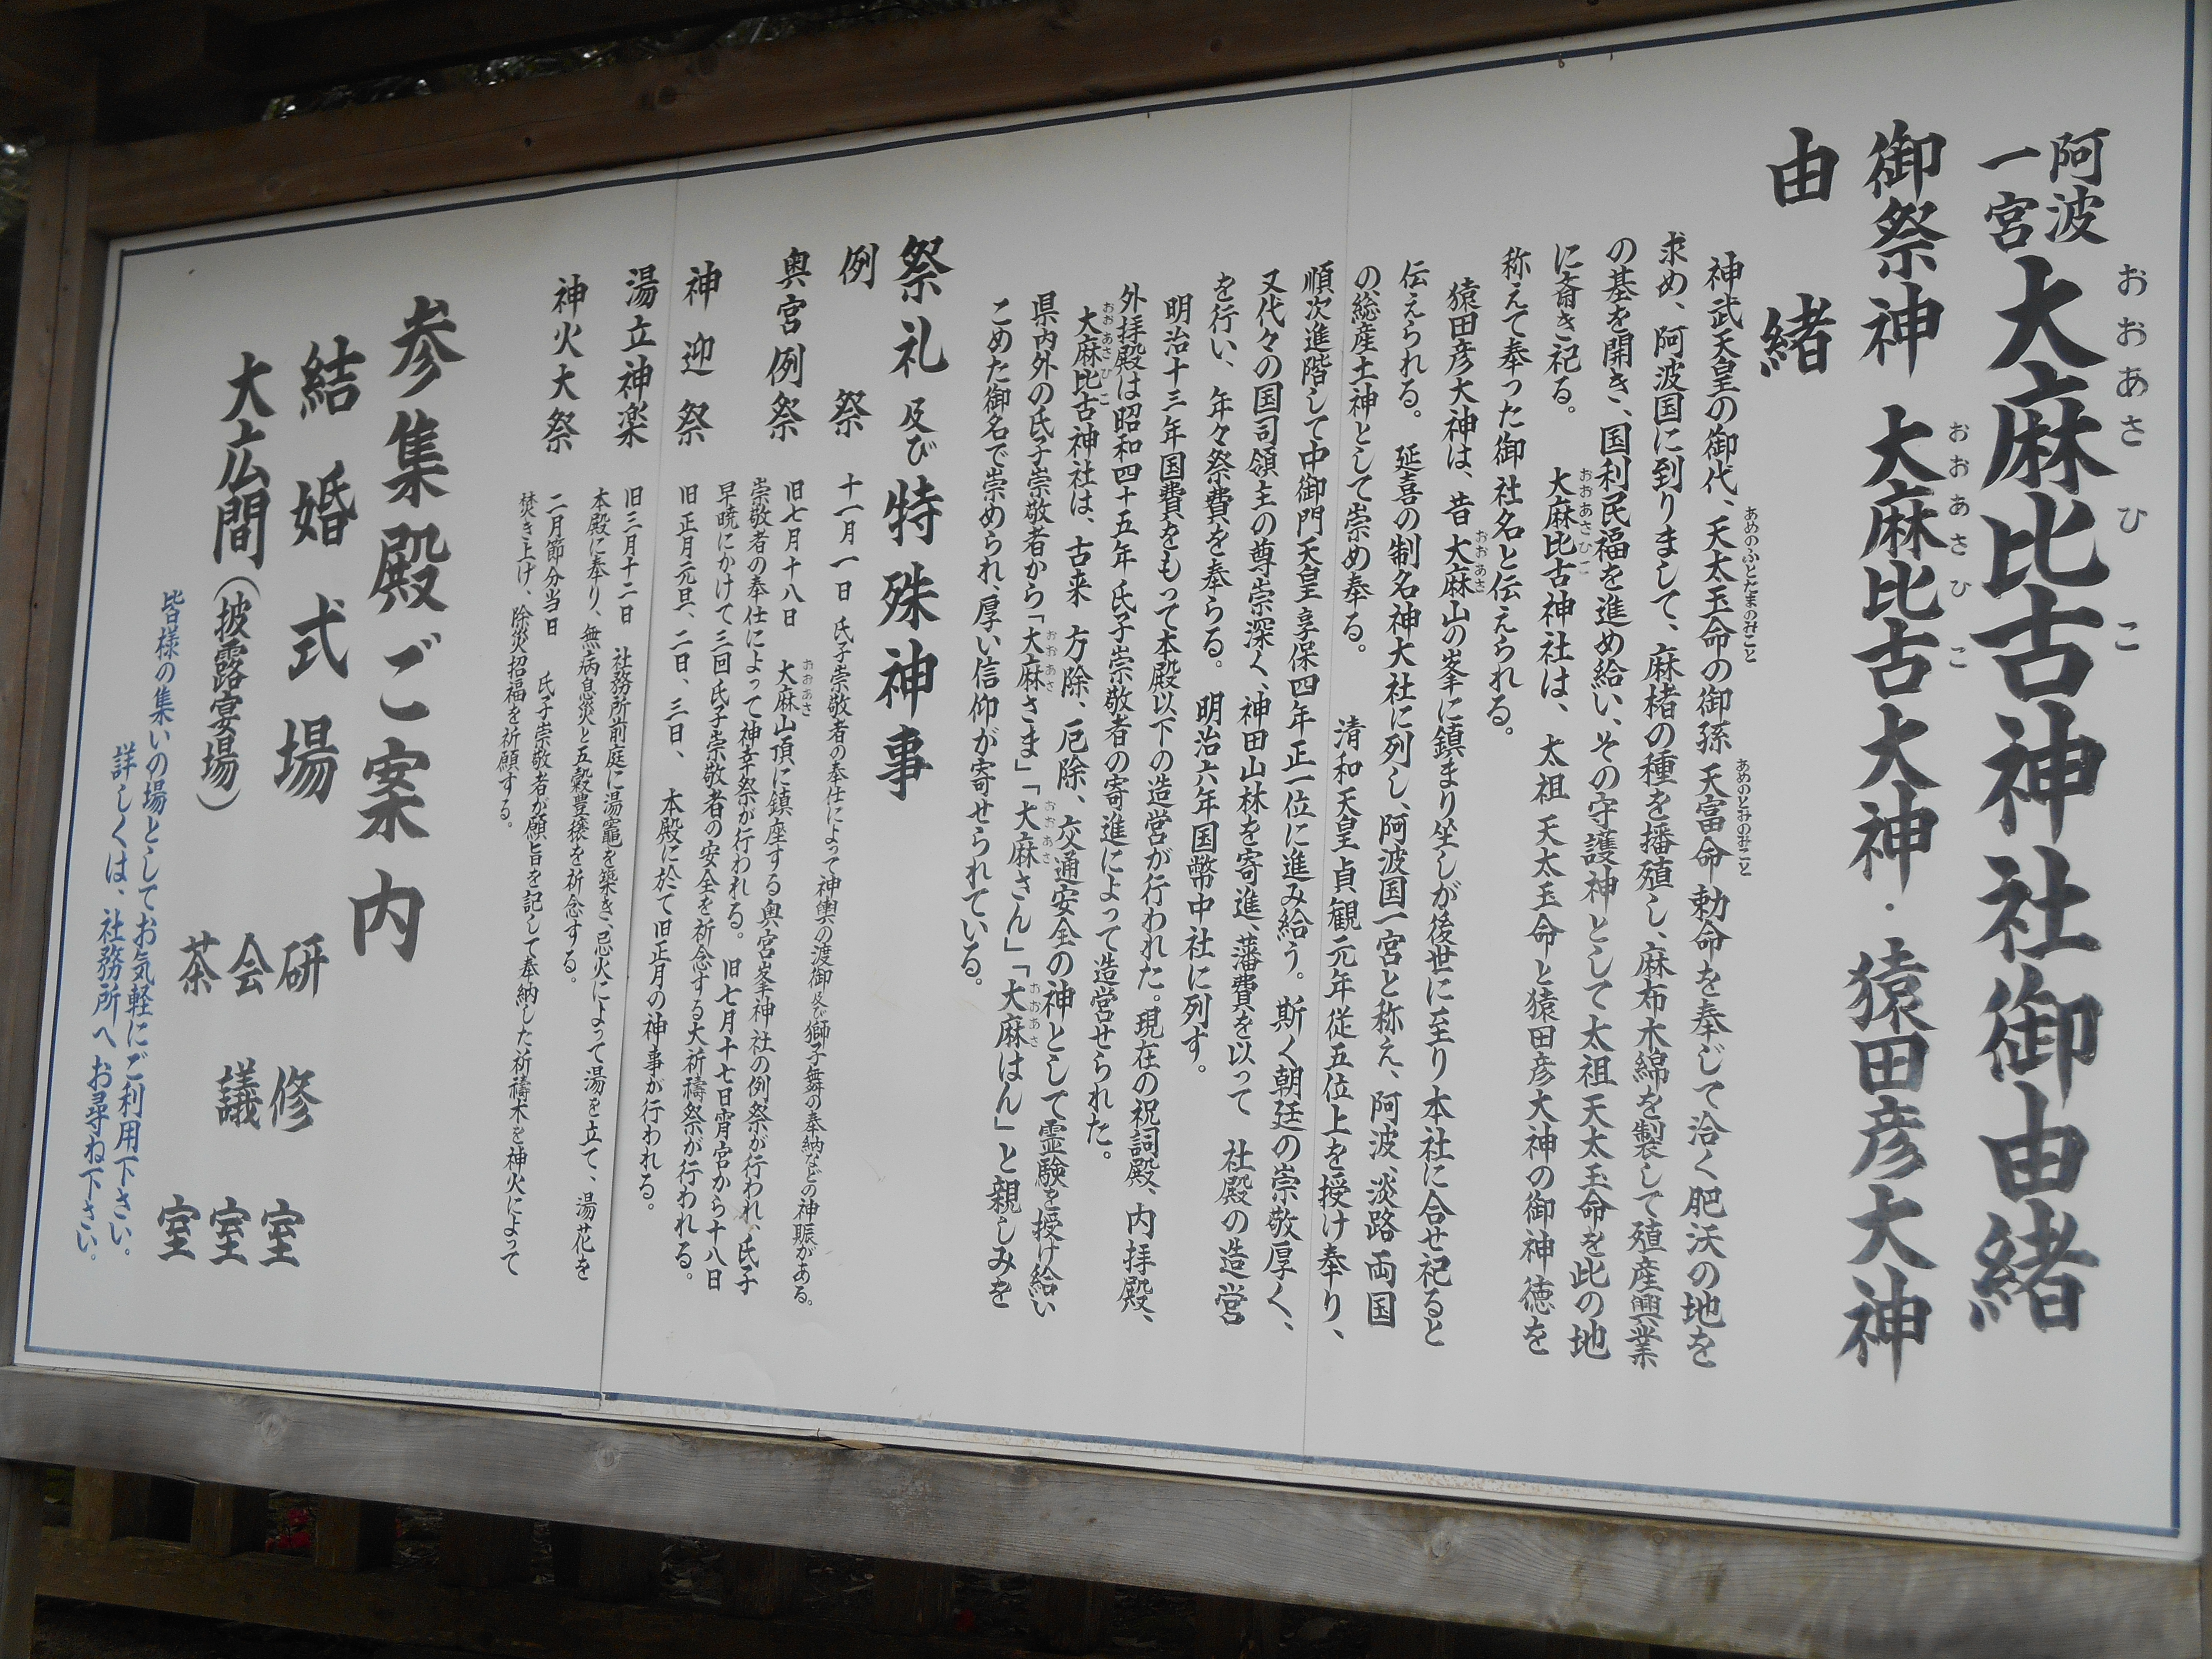 阿波一宮 大麻比古神社御由緒
おおあさひこ
御祭神 大麻比古大神・猿田彦大神
おおあさひこ
由緒
神武天皇の御代、天太玉命の御孫 天富命 勅命を奉じて洽く肥沃の地を
あめのふとだまのみこと あめのとみのみこと
求め、阿波国に到りまして、麻楮の種を播殖し、麻布木綿を製して殖産興業
の基を開き、国利民福を進め給い、その守護神として太祖天太玉命を此の地
に斎き祀る。 大麻比古神社は、太祖 天太玉命と猿田彦大神の御神徳を
おおあさひこ
称えて奉った御社名と伝えられる。
猿田彦大神は、昔 大麻山の峯に鎮まり坐しが後世に至り本社に合せ祀ると
おおあさ
伝えられる。 延喜の制名神大社に列し、阿波国一宮と称え、阿波、淡路両国
の総産土神として崇め奉る。 清和天皇貞観元年従五位上を授け奉り、
順次進階して中御門天皇享保四年正一位に進み給う。斯く朝廷の崇敬厚く、
又代々の国司領主の尊崇深く、神田山林を寄進、藩費を以って 社殿の造営
を行い、年々祭費を奉らる。 明治六年国幣中社に列す。
明治十三年国費をもって本殿以下の造営が行われた。現在の祝詞殿、内拝殿、
外拝殿は昭和四十五年 氏子崇敬者の寄進によって造営せられた。
大麻比古神社は、古来 方除、厄除、交通安全の神として霊験を授け給い
おおあさひこ
県内外の氏子崇敬者から「大麻さま」「大麻さん」「大麻はん」と親しみを
おおあさ おおあさ おおあさ
こめた御名で崇められ、厚い信仰が寄せられている。
祭礼及び特殊神事
例祭 十一月一日 氏子崇敬者の奉仕によって神輿の渡御及び獅子舞の奉納などの神賑がある。
奥宮例祭 旧七月十八日 大麻山頂に鎮座する奥宮峯神社の例祭が行われ、氏子
おおあさ
崇敬者の奉仕によって神幸祭が行われる。旧七月十七日宵宮から十八日
早暁にかけて三回氏子崇敬者の安全を祈念する大祈禱祭が行われる。
神迎祭 旧正月元旦、二日、三日、 本殿に於て旧正月の神事が行われる。
湯立神楽 旧三月十二日 社務所前庭に湯竈を築き、忌火によって湯を立て、湯花を
本殿に奉り、無病息災と五穀豊穣を祈念する。
神火大祭 二月節分当日 氏子崇敬者が願旨を記して奉納した祈禱木を神火によって
焚き上げ、除災招福を祈願する。
参集殿ご案内
結婚式場 研修室
大広間(披露宴場) 会議室
茶室
皆様の集いの場としてお気軽にご利用下さい。
詳しくは、社務所へお尋ね下さい。